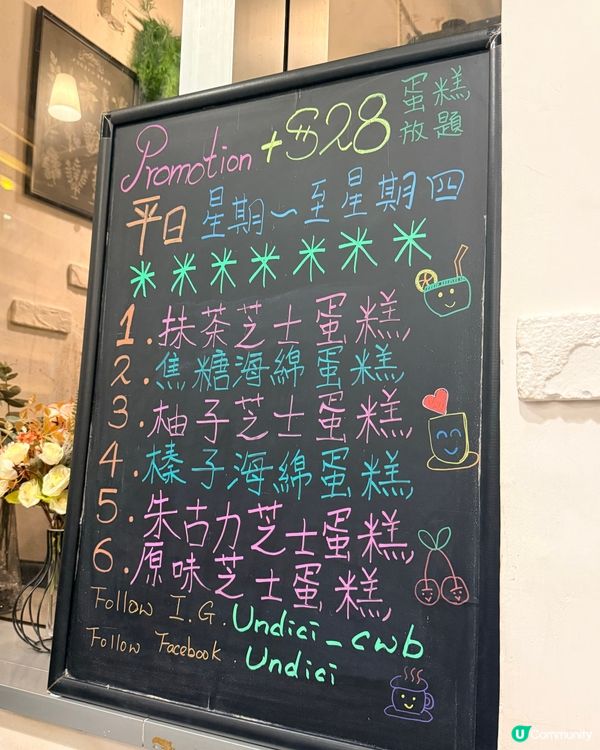 Promotion +$28 蛋糕放題
平日 星期一至星期四
1. 抹茶芝士蛋糕,
2. 焦糖海綿蛋糕,
3. 柚子芝士蛋糕,
4. 榛子海綿蛋糕,
5. 朱古力芝士蛋糕,
6. 原味芝士蛋糕,
Follow I.G. Undici_cwb
Follow Facebook. Undici
U Community